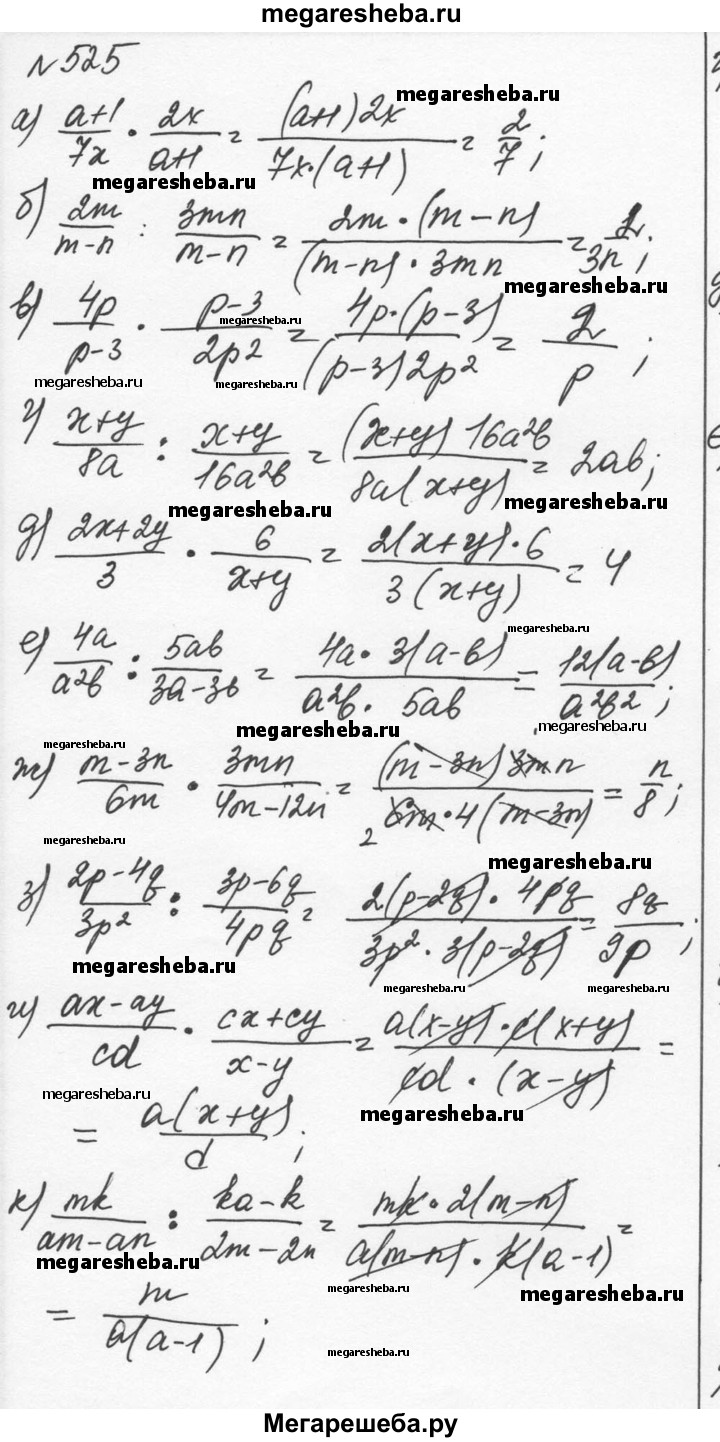 megaresheba.ru
№525
megaresheba.ru
а) (a+1)/(7x) · (2x)/(a+1) = ((a+1)2x)/(7x·(a+1)) = 2/7;
megaresheba.ru
б) (2m)/(m-n) : (3mn)/(m-n) = (2m·(m-n))/((m-n)·3mn) = 2/(3n);
megaresheba.ru
megaresheba.ru
в) (4p)/(p-3) · (p-3)/(2p2) = (4p·(p-3))/((p-3)2p²) = 2/p;
megaresheba.ru megaresheba.ru
г) (x+y)/(8a) : (x+y)/(16a²b) = ((x+y)16a²b)/(8a(x+y)) = 2ab;
megaresheba.ru megaresheba.ru
д) (2x+2y)/3 · 6/(x+y) = (2(x+y)·6)/(3(x+y)) = 4
megaresheba.ru
е) (4a)/(a²b) : (5ab)/(3a-3b) = (4a·3(a-b))/(a²b·5ab) = (12(a-b))/(a²b²);
megaresheba.ru megaresheba.ru
megaresheba.ru
ж) (m-3n)/(6m) · (3mn)/(4m-12n) = ((m-3n)3mn)/(6m·4(m-3n)) = n/8;
2
megaresheba.ru megaresheba.ru
з) (2p-4q)/(3p²) : (3p-6q)/(4pq) = (2(p-2q)·4pq)/(3p²·3(p-2q)) = (8q)/(9p);
megaresheba.ru
megaresheba.ru megaresheba.ru
и) (ax-ay)/(cd) · (cx+cy)/(x-y) = (a(x-y)·c(x+y))/(cd·(x-y)) =
megaresheba.ru megaresheba.ru
= (a(x+y))/d;
к) (mk)/(am-an) : (ka-k)/(2m-2n) = (mk·2(m-n))/(a(m-n)·k(a-1)) =
megaresheba.ru
megaresheba.ru megaresheba.ru
= m/(a(a-1));
megaresheba.ru
Мегарешеба.ру